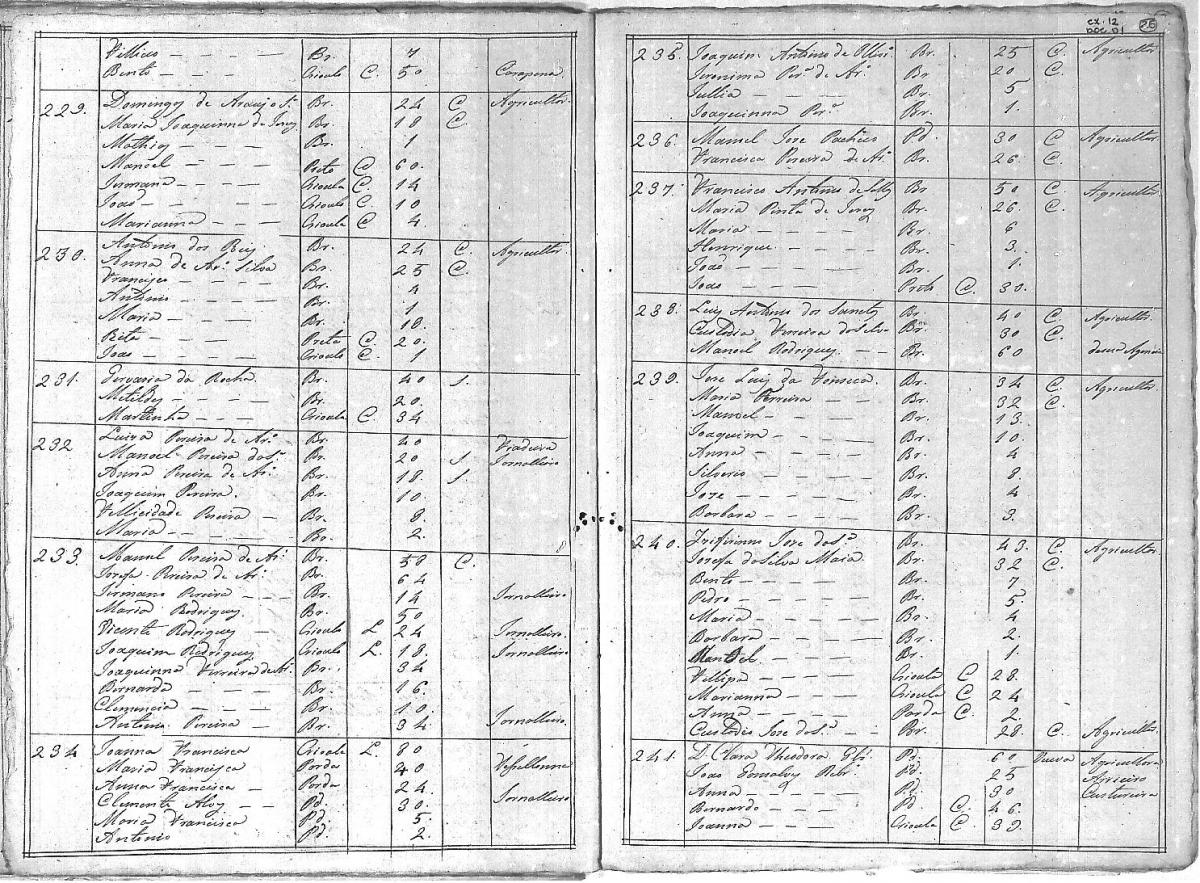 Fellicio — — — Br. 7
Bento — — — Crioulo C. 50 Carapina
229. Domingos de Araujo S.ª Br. 24 C Agricultor
Maria Joaquinna de Br. 18 C
Mathias — — — Br. 1
Manoel — — — Preto C 60.
Jermana — — — Crioula C. 14
João — — — Crioulo C. 10
Marianna — — Crioula C 4
230. Antonio dos Reis Br. 24 C. Agricultor
Anna de Ar.º Silva Br. 25 C.
Francisca — — — Br. 4
Antonio — — — Br. 1
Maria — — — Br. 18.
Rita — — — Preta C. 20.
João — — — Crioulo C. 1
231. Gervazia da Rocha Br. 40 S.
Matildes — — — Br. 20.
Martinha — — Crioula C 34
232 Luiza Pereira de Ar.º Br. 40 Fiadeira
Manoel Pereira dos S.tos Br. 20 S Jornalleiro
Anna Pereira de Ar.º Br. 18 S
Joaquim Pereira Br. 10
Fellicidade Pereira — Br. 8
Maria — — — Br. 2.
233. Manoel Pereira de Ar.º Br. 50 C.
Josefa Pereira de Ar.º Br. 64
Jermano Pereira — Br. 14 Jornalleiro
Maria Rodrigues Br. 50
Vicente Rodrigues — Crioulo L. 24 Jornalleiro
Joaquim Rodrigues Crioulo L. 18. Jornalleiro
Joaquinna Ferreira de Ar.º Br. 34
Bernarda — — Br. 16.
Clemencia — — Br. 10.
Antonio Pereira — Br. 34 Jornalleiro
234 Joanna Francisca Crioula L. 80
Maria Francisca Parda 40
Anna Francisca — Parda 24.
Clemente Alves — Pd. 30. Jornalleiro
Maria Francisca Pd. 5
Antonio Pd. 2.
CX. 12
DOC. 01
26
235. Joaquim Antonio de Br. 25 C. Agricultor
Jeronima Per.ª de Ar.º Br 20 C.
Jullia — — — Br. 5
Joaquinna Per.ª Br. 1.
236. Manoel Jose Pacheco Pd. 30 C Agricultor
Francisca Pereira de Ar.º Br. 26 C.
237. Francisco Antonio de Br 50 C Agricultor
Maria Pinta de Br. 26 C.
Maria — — — Br. 6
Henrique — — — Br. 3.
João — — — Br. 1.
João — — — Preto C. 30.
238. Luis Antonio dos Santos Br. 40 C Agricultor
Custodia Ferreira da Silva Br. 30 C.
Manoel Rodrigues — Br. 60
239. Jose Luis da Fonseca Br. 34 C. Agricultor
Maria Ferreira — — Br. 32 C.
Manoel — — — Br. 13.
Joaquim — — — Br. 10.
Anna — — — Br. 4
Silverio — — — Br. 8.
Jose — — — Br. 4
Barbara — — — Br. 3.
240. Jose dos S.tos Br. 43. C. Agricultor
Josefa da Silva Maria Br. 32 C.
Bento — — — Br. 7
Pedro — — — Br. 5.
Maria — — — Br. 4
Barbara — — — Br. 2.
Manoel — — — Br. 1.
Fellipa — — — Crioula C 28.
Marianna — — — Crioula C 24
Anna — — — Parda C. 2.
Custodio Jose dos S.tos — Br. 28. C. Agricultor
241. D. Clara Theodora Br. 60 Viuva Agricultora
João Gonsalves Pd. 25 Arrieiro
Anna — — — Pd. 30 Custureira
Bernardo — — — Pd. C. 46.
Joanna — — — Crioula C. 39.